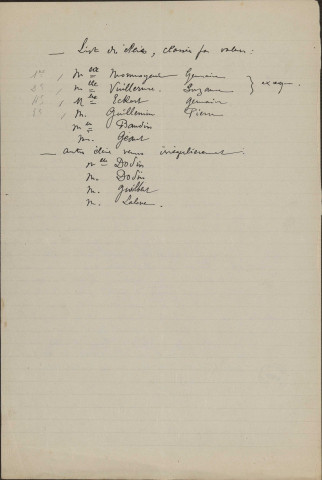 — Liste d'élèves, classés par valeur :
1re, Melle Germaine
2e, Melle Vuillermoz Suzanne } ex aequo.
Melle Eckert Germaine
M. Guillemin Pierre
Melle Baudin
M. Geant
— autres élèves venus irrégulièrement.
Melle Dodin
M. Dodin
M. Guilbert
M.